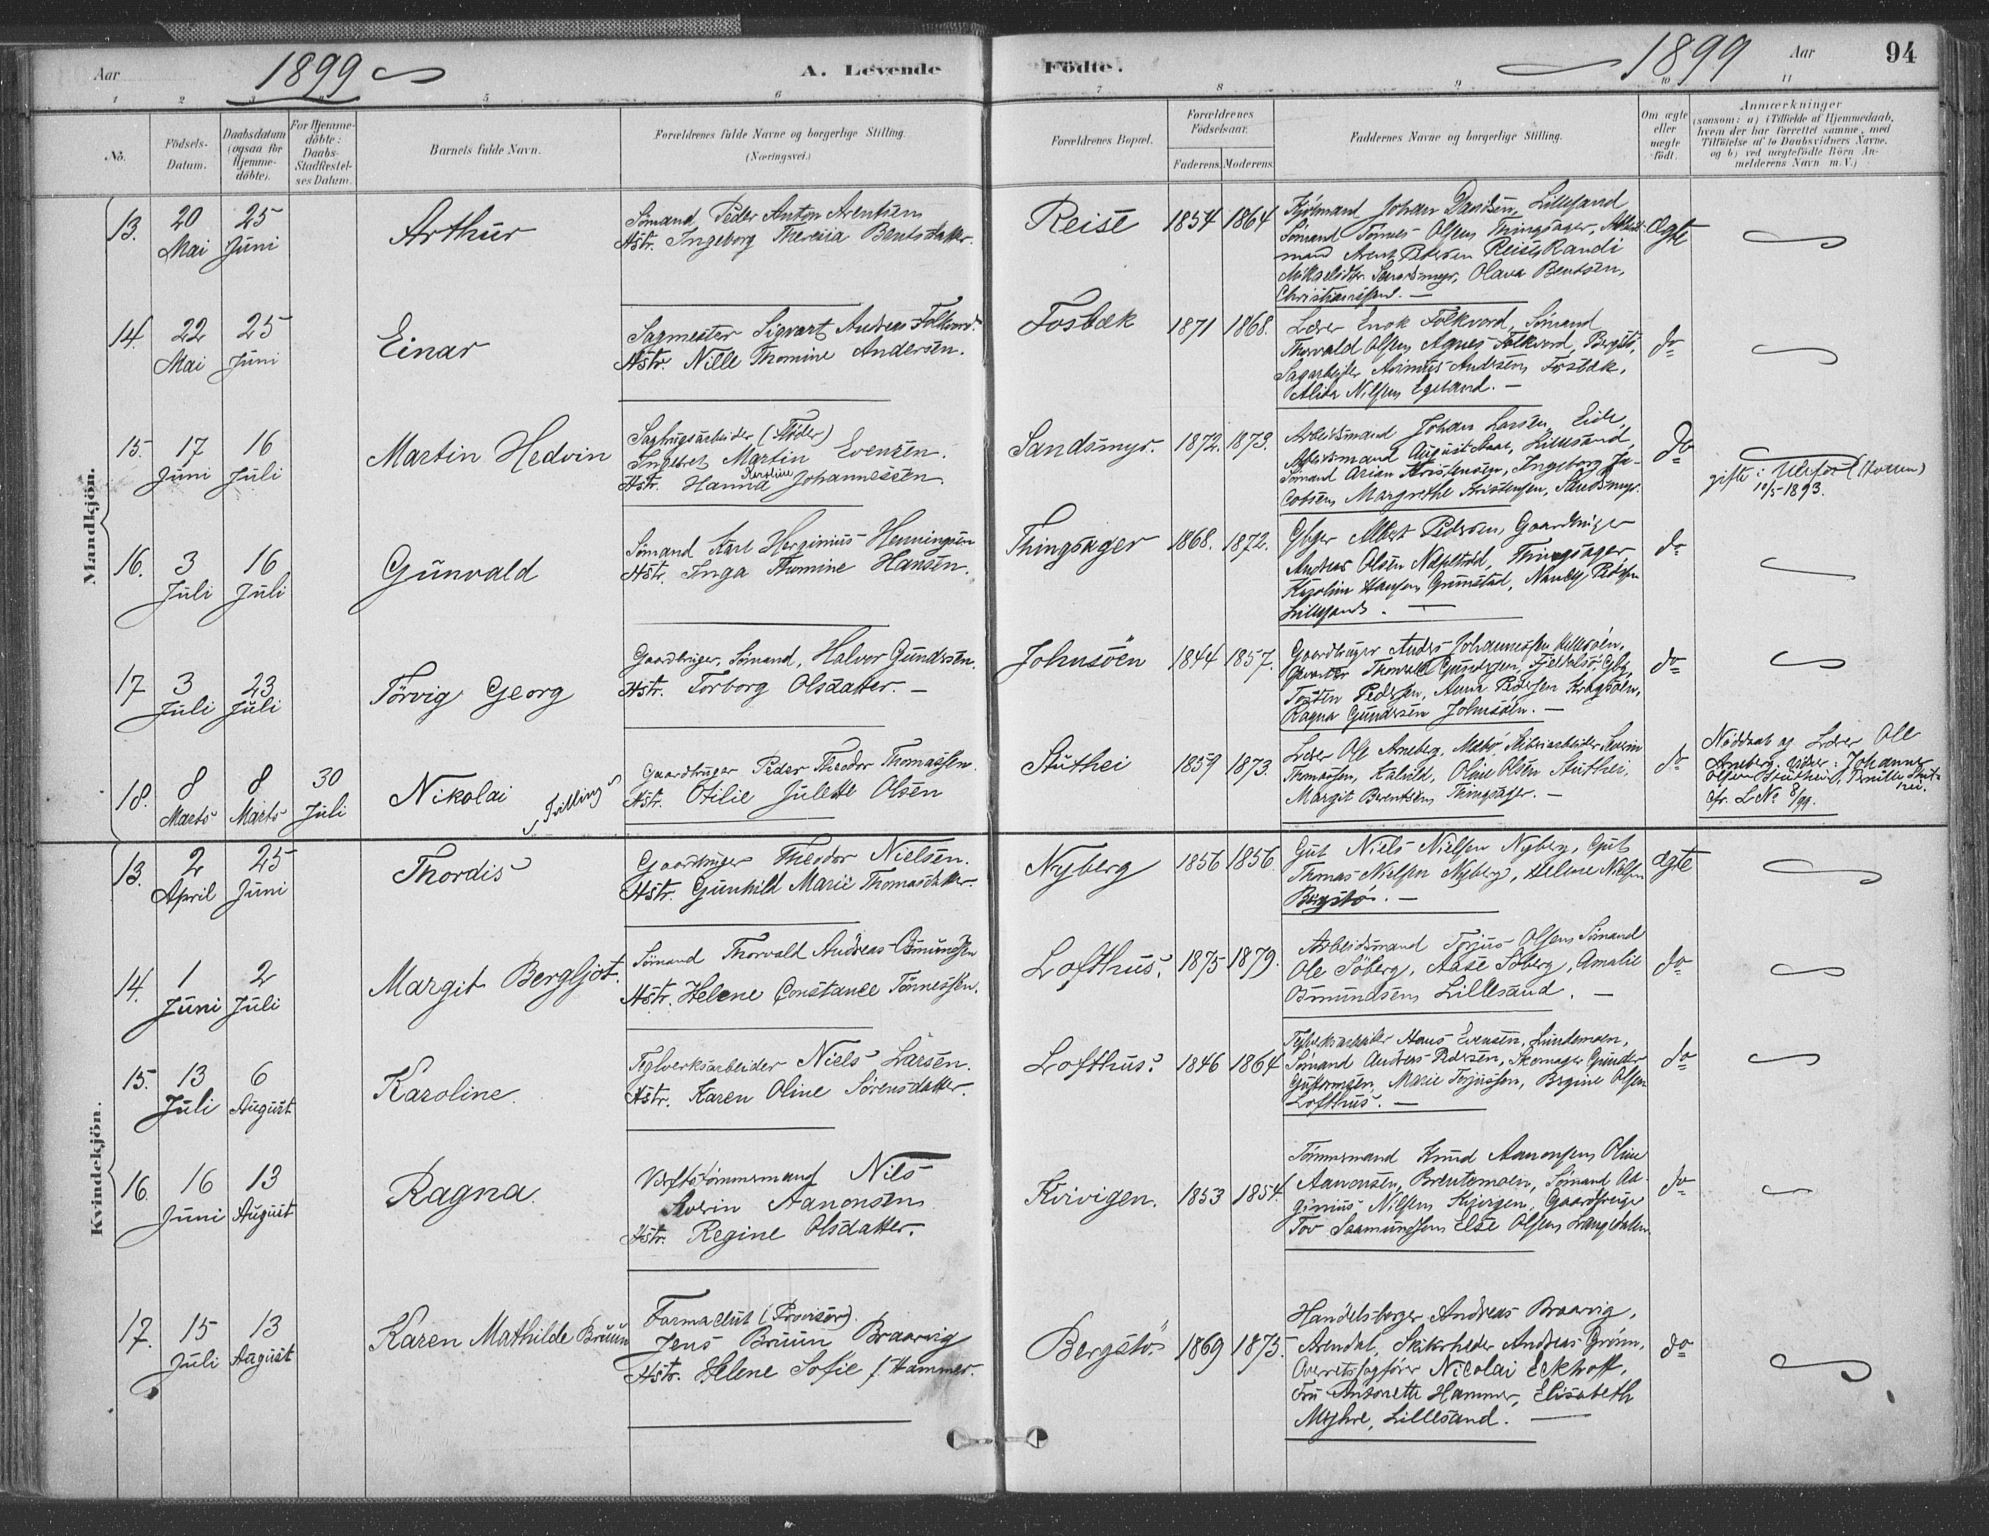 Aar 1899 A. Levende
Födte. 1899 Aar 94
1 2 3 5 6 7 8 9 10 11
No.
Födsels-Datum.
Daabsdatum (ogsaa for Hjemme-döbte).
For Hjemme-döbte: Daabs-Stadfæstel-ses Datum.
Barnets fulde Navn.
Forældrenes fulde Navne og borgerlige Stilling.
(Næringsvei.)
Forældrenes Bopæl.
Forældrenes Födselsaar.
Faderens. Moderens.
Faddernes Navne og borgerlige Stilling.
Om ægte eller uægte født.
Anmærkninger
(saasom: a) i Tilfælde af Hjemmedaab,
hvem der har forrettet samme, med
Tilföielse af to Daabsvidners Navne,
og b) ved uægtefödte Börn An-
melderens Navn m. V.)
Mandkjön.
13. 20 Mai 25 Juni Arthur
Sömand Peder Anton Arentsen
Hstr. Ingeborg Theresia Bentsdatter.
Reise 1854 1864
Johan Davidsen, Lillesand
Sömand Tönnes Olsen Thingsager,
mand Arent Pedersen Reise, Randi
Olava Bentsen,
Christianssand. —
Ægte
14. 22 Mai 25 Juni Einar
Sagmester Sigvart Andreas Folkvord.
Hstr. Nille Thomine Andersen.
Fosbæk 1871 1868.
Lærer Enok Folkvord, Sömand
Thorvald Olsen, Agnes Folkvord, Bergstö,
Sagarbeider Asimus Andersen Fosbæk,
Alida Nilsen Egeland. —
do
15. 17 Juni 16 Juli Martin Hedvin
Sagbrugsarbeider (Fløder)
Ingebret Martin Evensen.
Hstr. Hanna Karoline Johannessen.
Sandsmyr. 1872. 1873.
Arbeidsmand Johan Larsen, Eide,
Arbeidsmand August Lillesand,
Sömand Arian Kristensen, Ingeborg Ja-
cobsen, Margrethe Kristensen, Sandsmyr.
do
gifte i Ulefos (Holden)
10/5 1893.
16. 3 Juli 16 Juli Gunvald
Sömand Karl Herginius Henningsen
Hstr. Inga Thomine Hansen.
Thingsager 1868. 1872.
Gbger Albert Pedersen, Gaardbruger
Andreas Olsen Thingsager
Karoline Hansen, Grimstad, Pedersen
Lillesand. —
do
17 3 Juli 23 Juli Törvig Georg
Gaardbruger, Sömand, Halvor Gundersen.
Hstr. Torborg Olsdatter. —
Johnsöen 1844 1857.
Gaardbruger Anders Johannessen
Gundersen, Gbg.
Tosten Pedersen, Anna Pedersen
Ragna Gundersen Johnsöen. —
do
18. 8 Marts 8 Marts 30 Juli Nikolai
Tvilling
Gaardbruger Peder Theodor Thomassen.
Hstr. Otilie Julette Olsen
Stuthei 1859 1873.
Lærer Ole Arneberg, Moebö Skibsarbeider Severin
Thomassen, Kaldvld, Oline Olsen Stuthei,
Margit Berentsen Thingsager. —
do
Nöddaab af Lærer Ole
Arneberg. Vidner: Johanne
Olsen Stuthei, Pernille Stut-
hei.
cfr. L No 8/99.
Kvindekjön.
13. 2 April 25 Juni Thordis
Gaardbruger Theodor Nielsen.
Hstr. Gunhild Marie Thomasdatter.
Nyberg 1856 1856.
Gut Niels Nielsen Nyberg, Gut
Thomas Nielsen Nyberg, Helene Nielsen
Bergstö. —
ægte
14. 1 Juni 2 Juli Margit Bergljot.
Sömand Thorvald Andreas Osmundsen
Hstr. Helene Constance Tönnessen.
Lofthus. 1875 1879.
Arbeidsmand Terjus Olsen, Sömand
Ole Söberg, Aase Söberg, Amalie
Osmundsen Lillesand. —
do
15. 13 Juli 6 August Karoline.
Teglverksarbeider Niels Larsen.
Hstr. Karen Oline Sörensdatter.
Lofthus. 1846 1864
Teglverksarbeider Hans Evensen, Lundemoen,
Sömand Andreas Pedersen, Skomager Gunder
Guttormsen, Marie Terjussen, Bergine Olsen
Lofthus. —
do
16. 16 Juni 13 August Ragna.
Værftstömmermand Nils
Severin Aanonsen
Hstr. Regine Olsdatter.
Kvivigen. 1853 1854.
Tömmermand Knud Aanonsen, Oline
Aanonsen, Brentemoen, Sömand Ab-
ginius Nilsen Kvivigen, Gaardbruger
Tov Saamundsen, Else Olsen, Langedalen.
do
17. 15 Juli 13 August Karen Mathilde Bruun
Farmaceut (Provisor).
Jens Bruun Braarvig
Hstr. Helene Sofie f. Hammer.
Bergstö 1869 1873.
Handelsborger Andreas Braarvig,
Arendal, Skibsrheder Andreas Grönn,
Overretssagförer Nicolai Eckhoff,
Fru Antonette Hammer, Elisabeth
Myhre, Lillesand. —
do